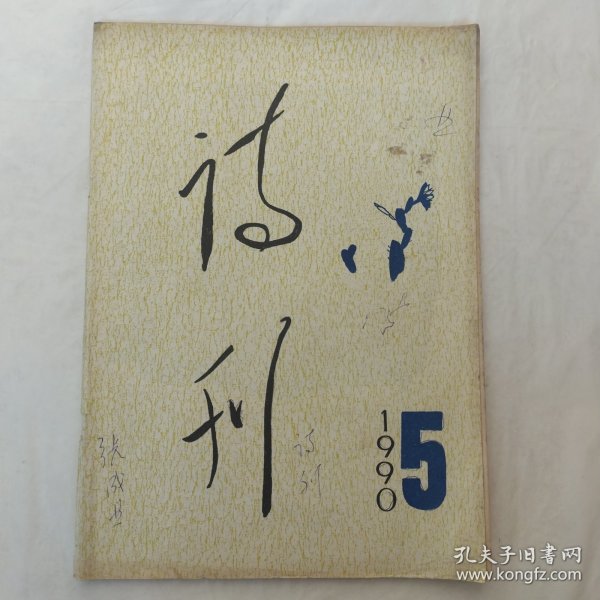 诗
刊
1990
5
诗
刊
张成
孔夫子旧书网
www.kongfz.com